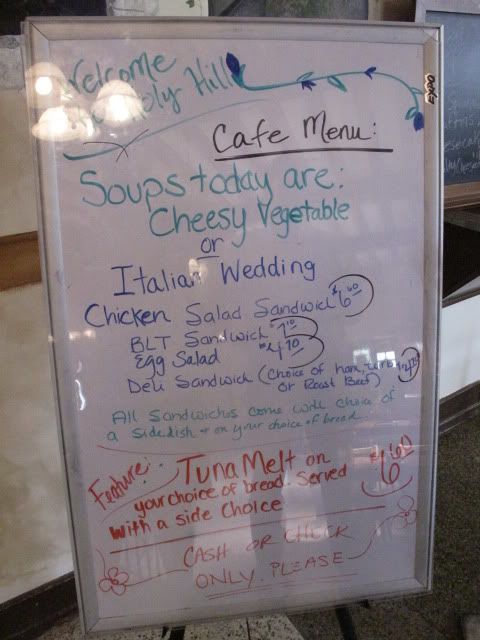 Welcome
Holy Hill
Cafe Menu:
Soups today are:
Cheesy Vegetable
or
Italian Wedding
Chicken Salad Sandwich $6.60
BLT Sandwich
Egg Salad
Deli Sandwich (Choice of ham, turkey
or Roast Beef)
All Sandwiches come with choice of
a side dish + on your choice of bread
Feature: Tuna Melt on $6.60
your choice of bread. Served
with a side choice
CASH OR CHECK
ONLY. PLEASE